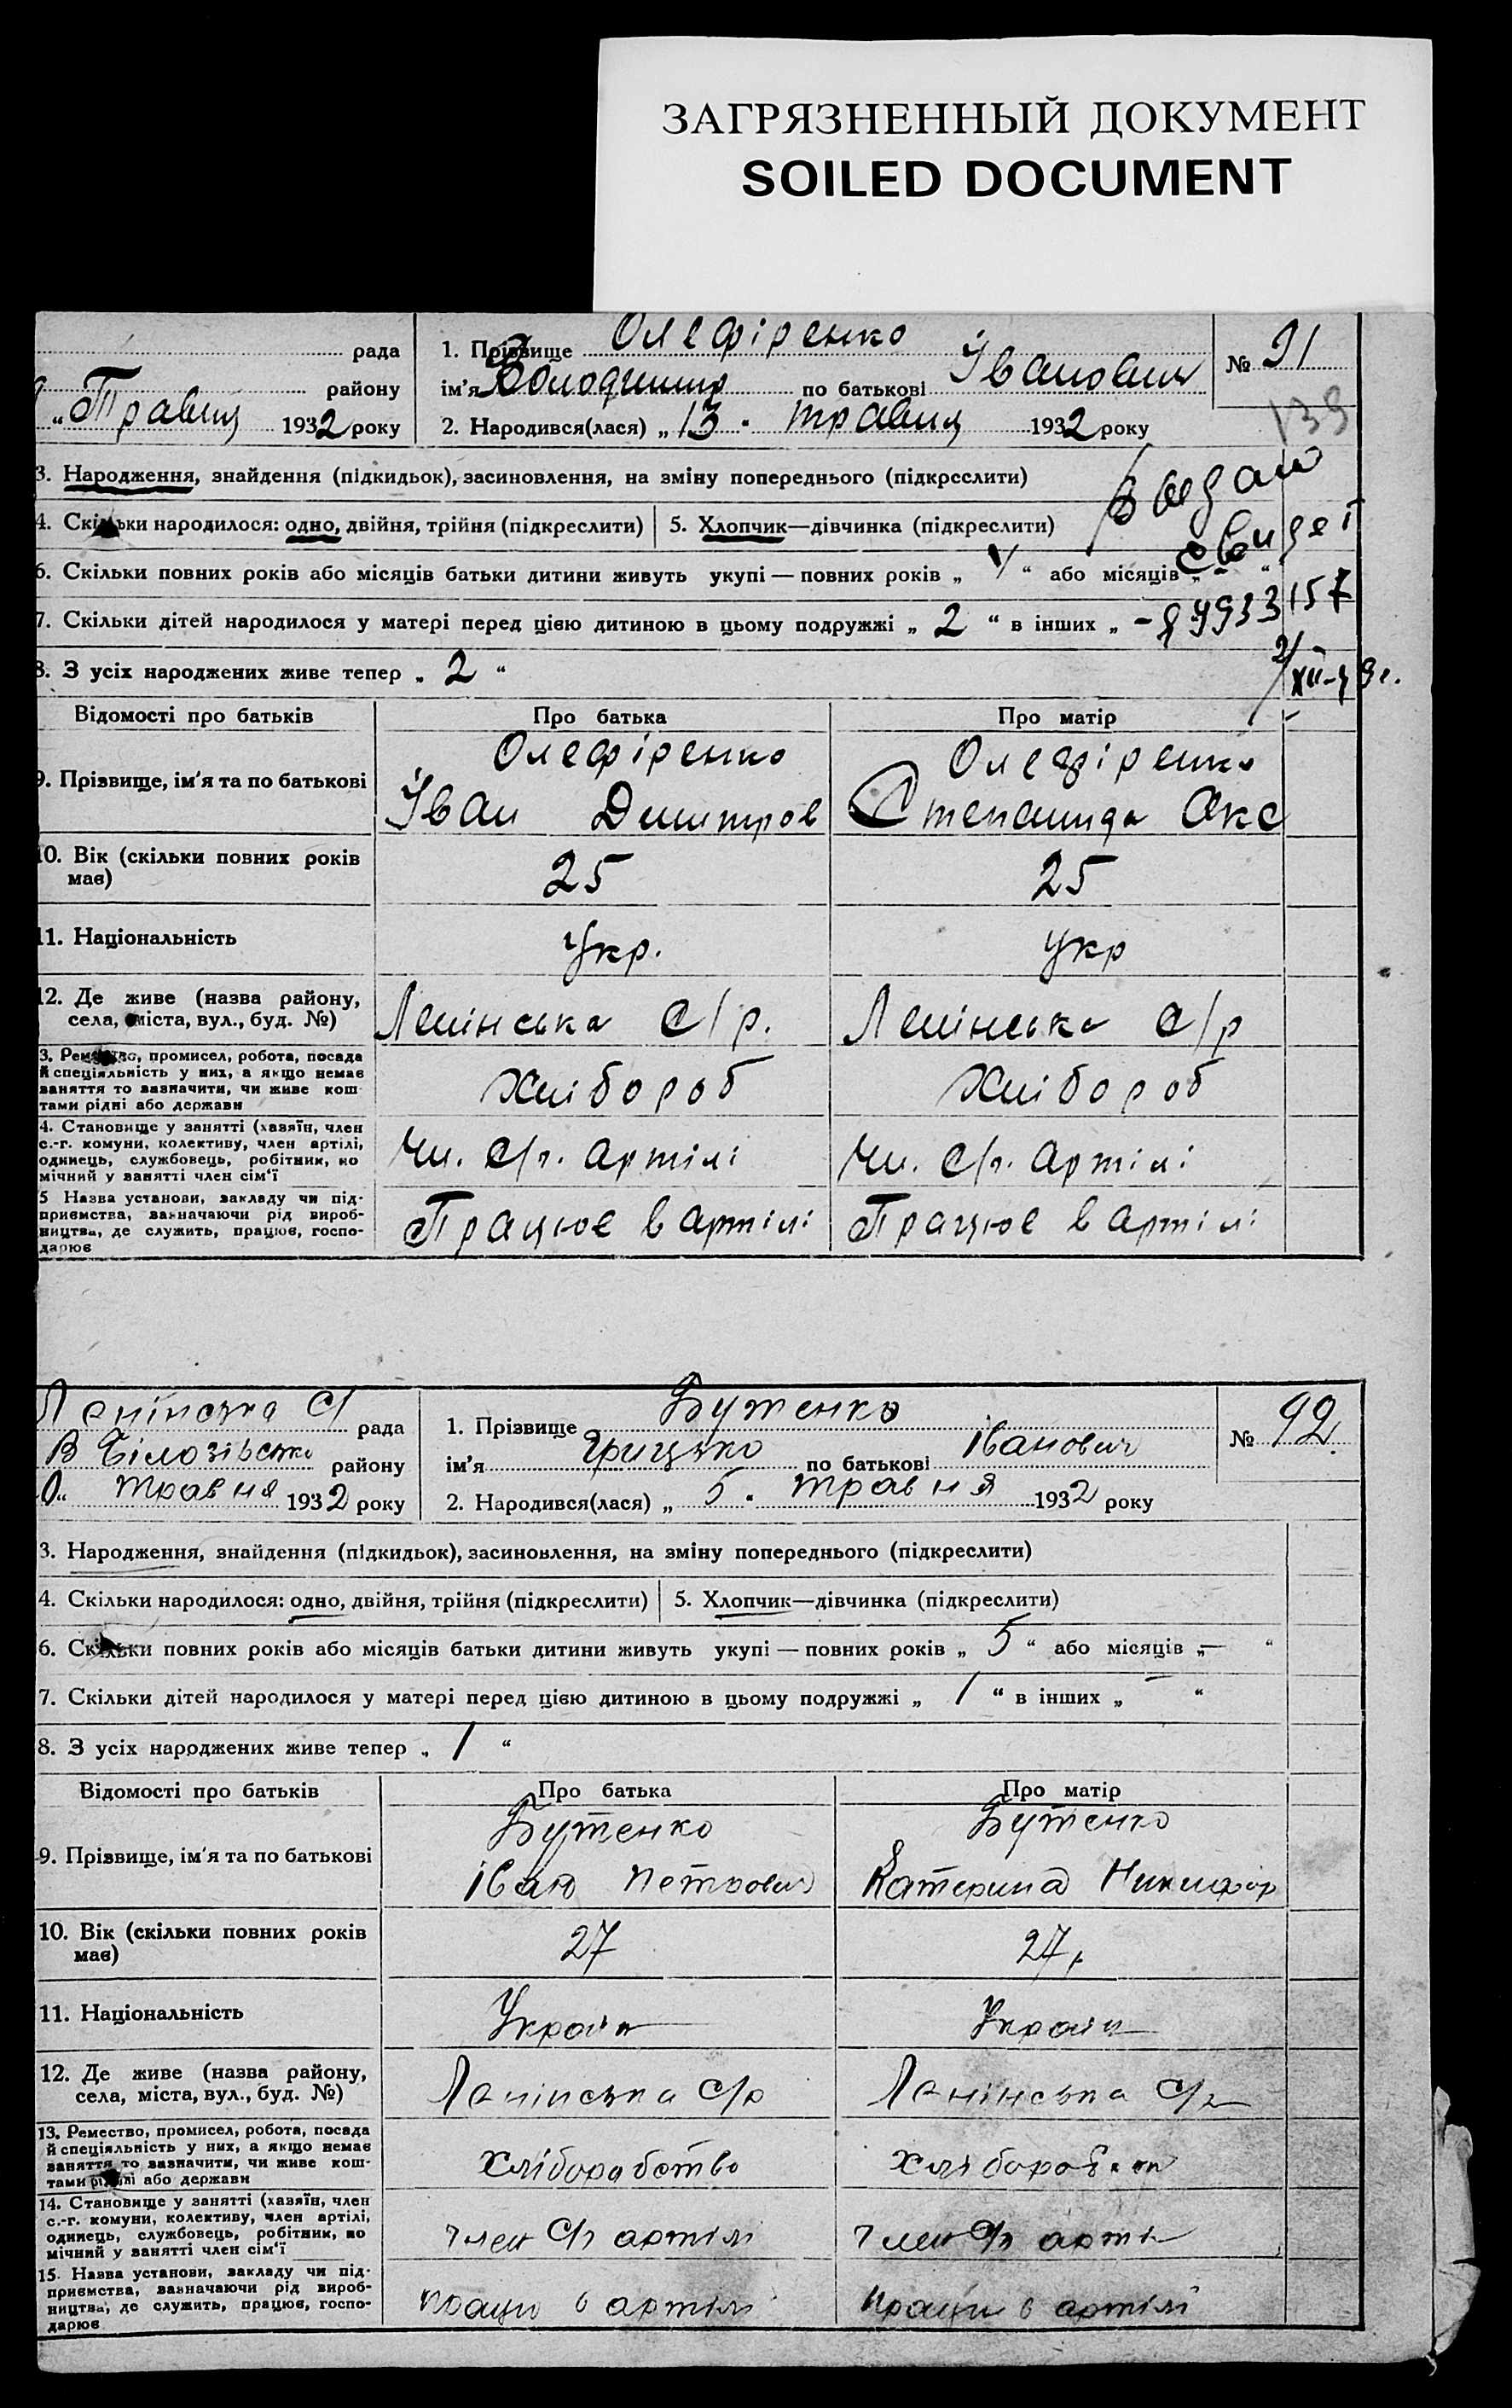 ЗАГРЯЗНЕННЫЙ ДОКУМЕНТ
SOILED DOCUMENT
рада
району
„ Травня 1932 року
1. Прізвище Олефіренко
ім'я Володимир по батькові Іванович
2. Народився(лася) „ 13 " травня 1932 року
№ 91
139
3. Народження, знайдення (підкидьок), засиновлення, на зміну попереднього (підкреслити)
4. Скільки народилося: одно, двійня, трійня (підкреслити) 5. Хлопчик—дівчинка (підкреслити)
Выдано
свидет
6. Скільки повних років або місяців батьки дитини живуть укупі — повних років „ “ або місяців „ - “
7. Скільки дітей народилося у матері перед цією дитиною в цьому подружжі „ 2 “ в інших „ -
8. З усіх народжених живе тепер „ 2 “
Відомості про батьків Про батька Про матір
9. Прізвище, ім'я та по батькові
Олефіренко
Іван Дмитров
Олефіренко
Степанида Окс
10. Вік (скільки повних років
має)
25
25
11. Національність
Укр.
Укр
12. Де живе (назва району,
села, міста, вул., буд. №)
Ленінська с/р.
Ленінська с/р
3. Ремество, промисел, робота, посада
й спеціяльність у них, а якщо немає
заняття то зазначити, чи живе кош-
тами рідні або держави
Хлібороб
Хлібороб
4. Становище у занятті (хазяїн, член
с.-г. комуни, колективу, член артілі,
одинець, службовець, робітник, по
мічний у занятті член сім'ї
Чл. с/г. артілі
Чл. с/г. артілі
5 Назва установи, закладу чи під-
приємства, зазначаючи рід вироб-
ництва, де служить, працює, госпо-
дарює
Працює в артілі
Працює в артілі
Ленінська С/ рада
В Білозірсько району
травня 1932 року
1. Прізвище Бутенко
ім'я Грицько по батькові Іванович
2. Народився(лася) „ 5 " травня 1932 року
№ 92.
3. Народження, знайдення (підкидьок), засиновлення, на зміну попереднього (підкреслити)
4. Скільки народилося: одно, двійня, трійня (підкреслити) 5. Хлопчик—дівчинка (підкреслити)
6. Скільки повних років або місяців батьки дитини живуть укупі — повних років „ 5 “ або місяців „ — “
7. Скільки дітей народилося у матері перед цією дитиною в цьому подружжі „ 1 “ в інших „ — “
8. З усіх народжених живе тепер „ 1 “
Відомості про батьків Про батька Про матір
9. Прізвище, ім'я та по батькові
Бутенко
Іван Петрович
Бутенко
Катерина Никифор
10. Вік (скільки повних років
має)
27
27
11. Національність
Україн
Україн
12. Де живе (назва району,
села, міста, вул., буд. №)
Ленінська с/р
Ленінська с/р
13. Ремество, промисел, робота, посада
й спеціяльність у них, а якщо немає
заняття то зазначити, чи живе кош-
тами рідні або держави
хліборобство
14. Становище у занятті (хазяїн, член
с.-г. комуни, колективу, член артілі,
одинець, службовець, робітник, по
мічний у занятті член сім'ї
член с/г артілі
член с/г арті
15. Назва установи, закладу чи під-
приємства, зазначаючи рід вироб-
ництва, де служить, працює, госпо-
дарює
працю в артілі
працю в артілі